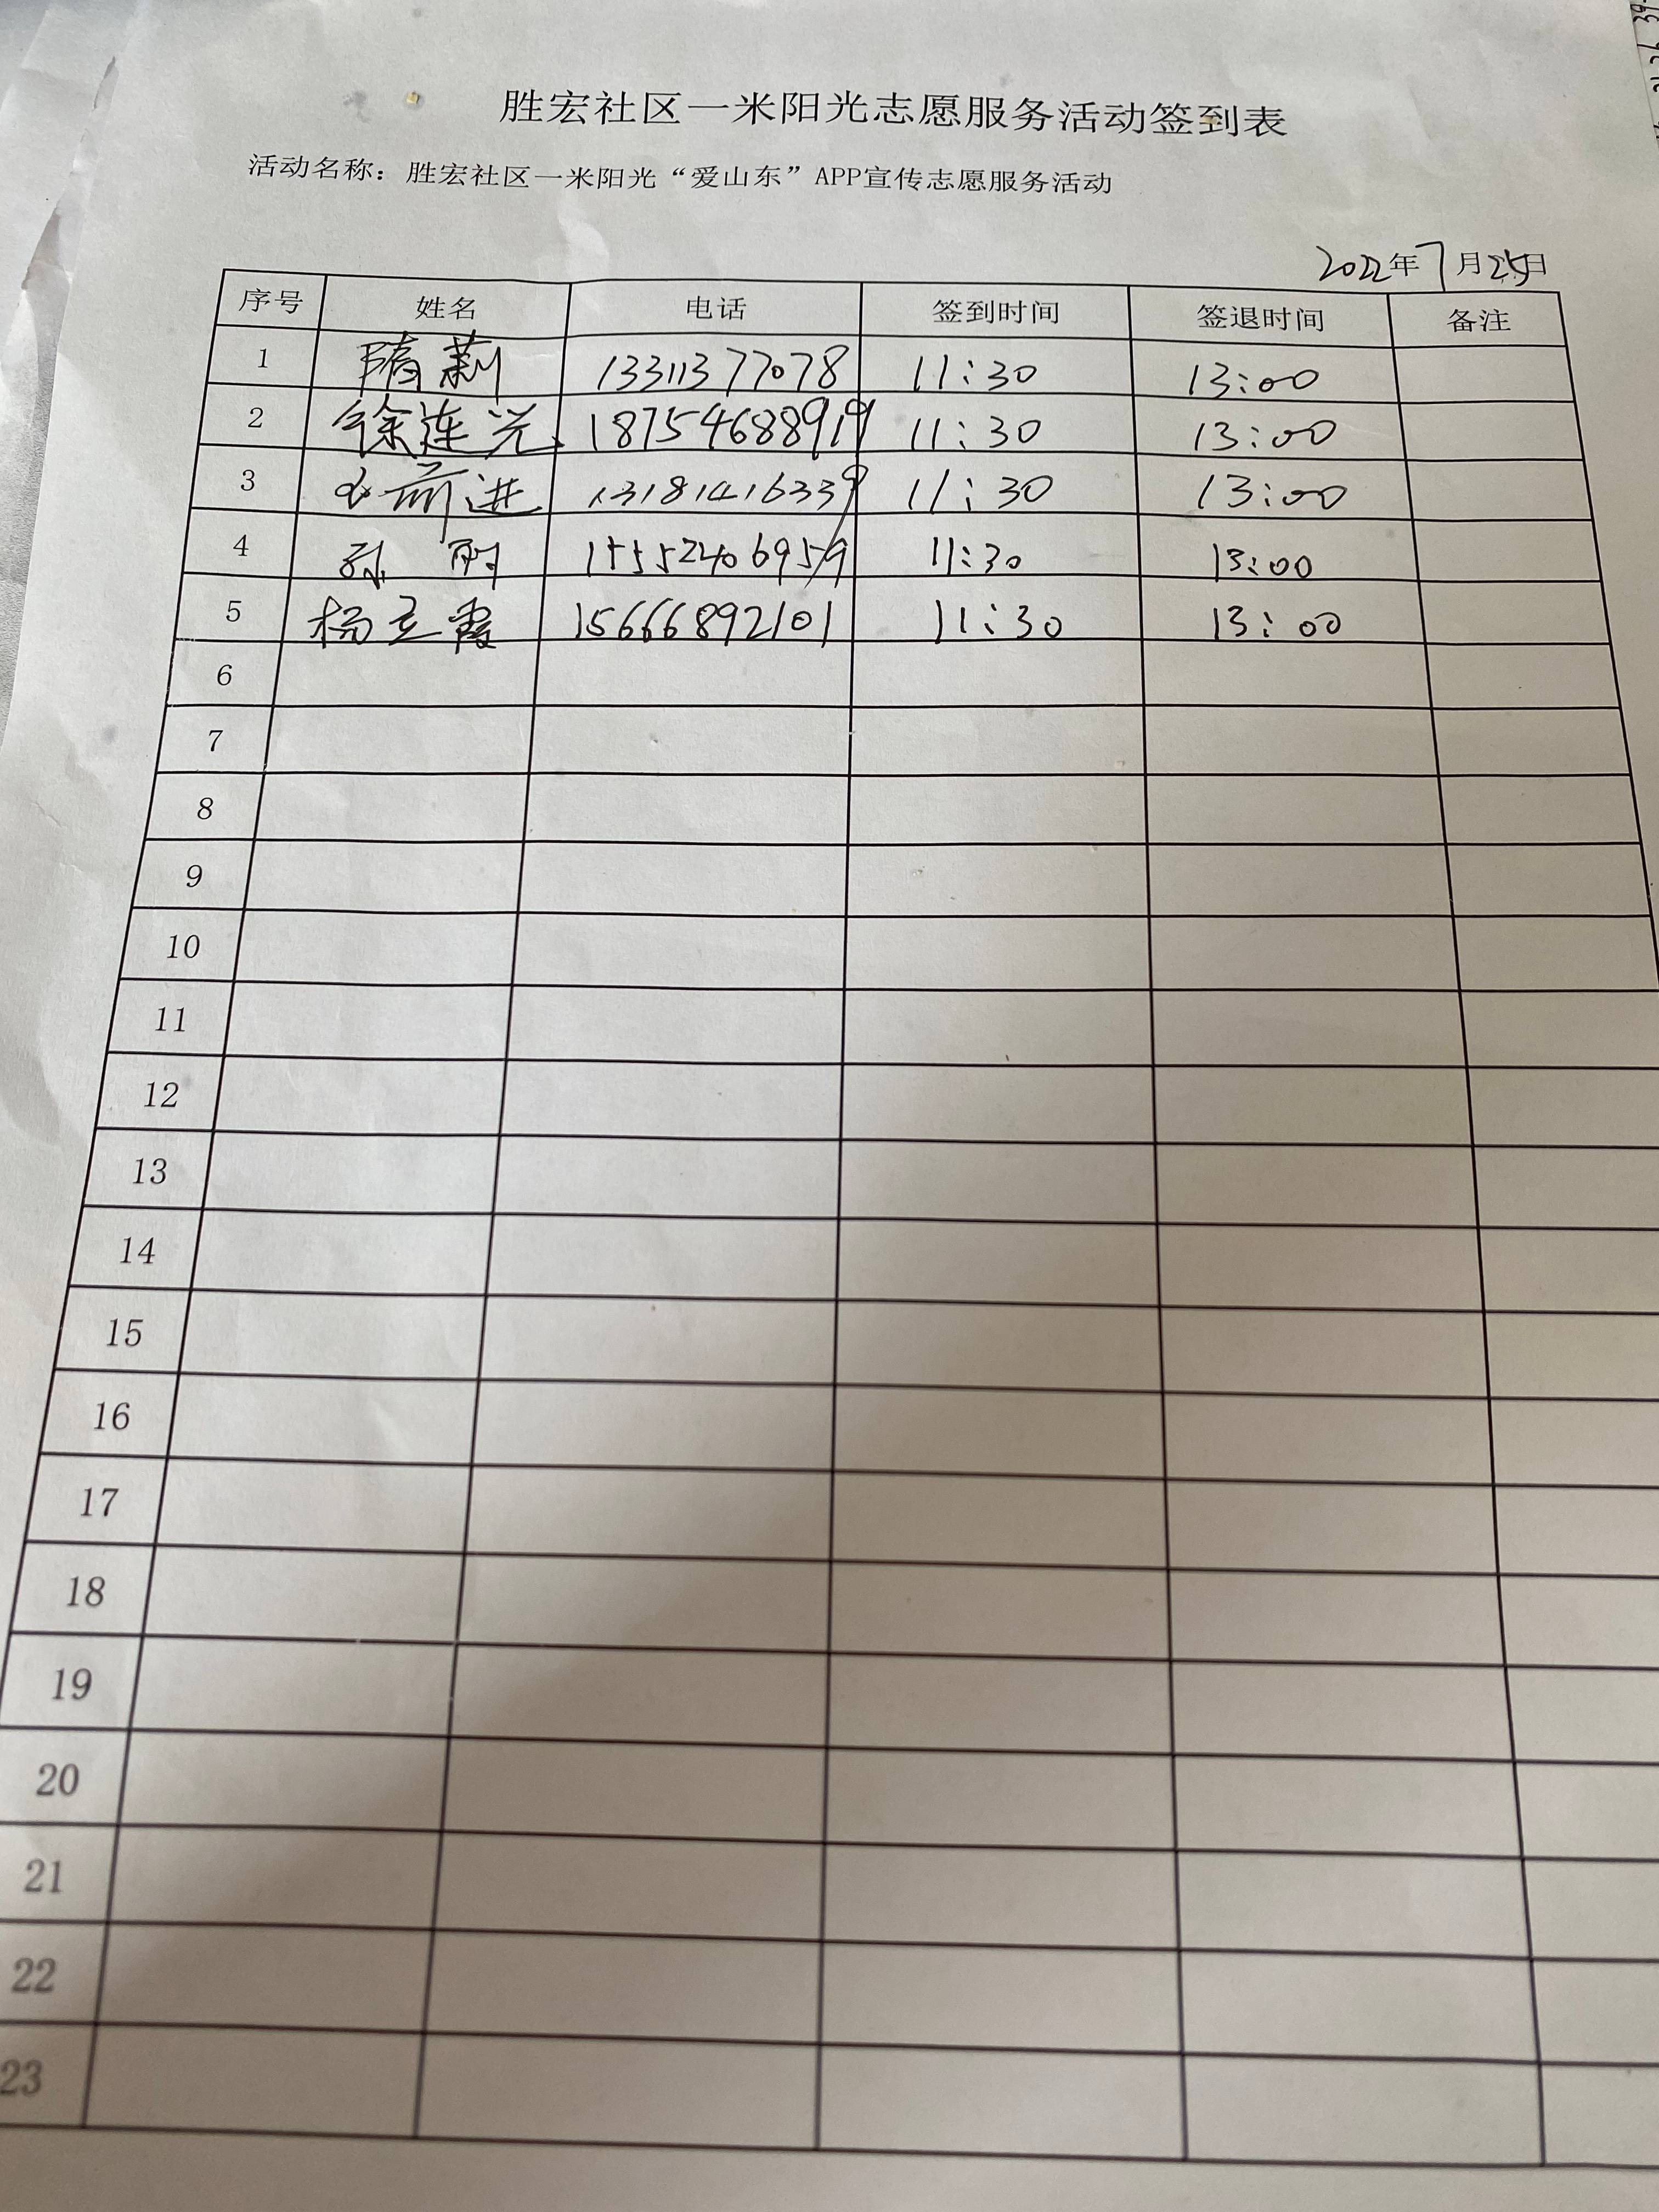 胜宏社区一米阳光志愿服务活动签到表
活动名称：胜宏社区一米阳光“爱山东”APP宣传志愿服务活动
2022年7月25日
序号 姓名 电话 签到时间 签退时间 备注
1 隋莉 13311377078 11:30 13:00
2 徐连光 18754688919 11:30 13:00
3 前进 13181416339 11:30 13:00
4 孙 15552406959 11:30 13:00
5 杨立霞 15666892101 11:30 13:00
6
7
8
9
10
11
12
13
14
15
16
17
18
19
20
21
22
23